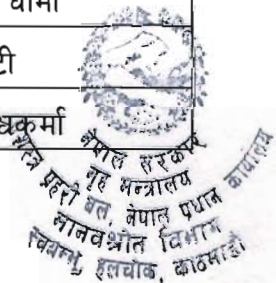 टी
नेपाल सरकार
गृह मन्त्रालय
सशस्त्र प्रहरी बल, नेपाल प्रधान कार्यालय
मानवश्रोत विभाग
स्वयम्भु हलचोक, काठमाडौं